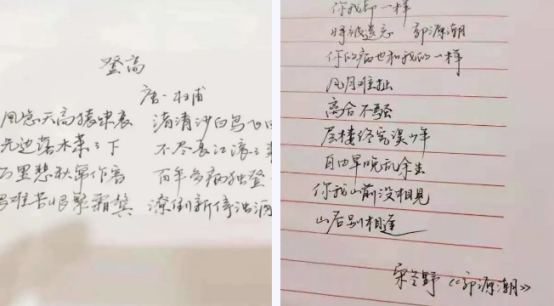 登高
唐·杜甫
风急天高猿啸哀 渚清沙白鸟飞回
无边落木萧々下 不尽长江滚々来
万里悲秋常作客 百年多病独登
难苦恨繁霜鬓 潦倒新停浊酒
你我都一样
将被遗忘 郭源潮
你的病也和我的一样
风月难扯
离合不骚
层楼终究误少年
自由早晚乱余生
你我山前没相见
山后别相逢
宋冬野《郭源潮》